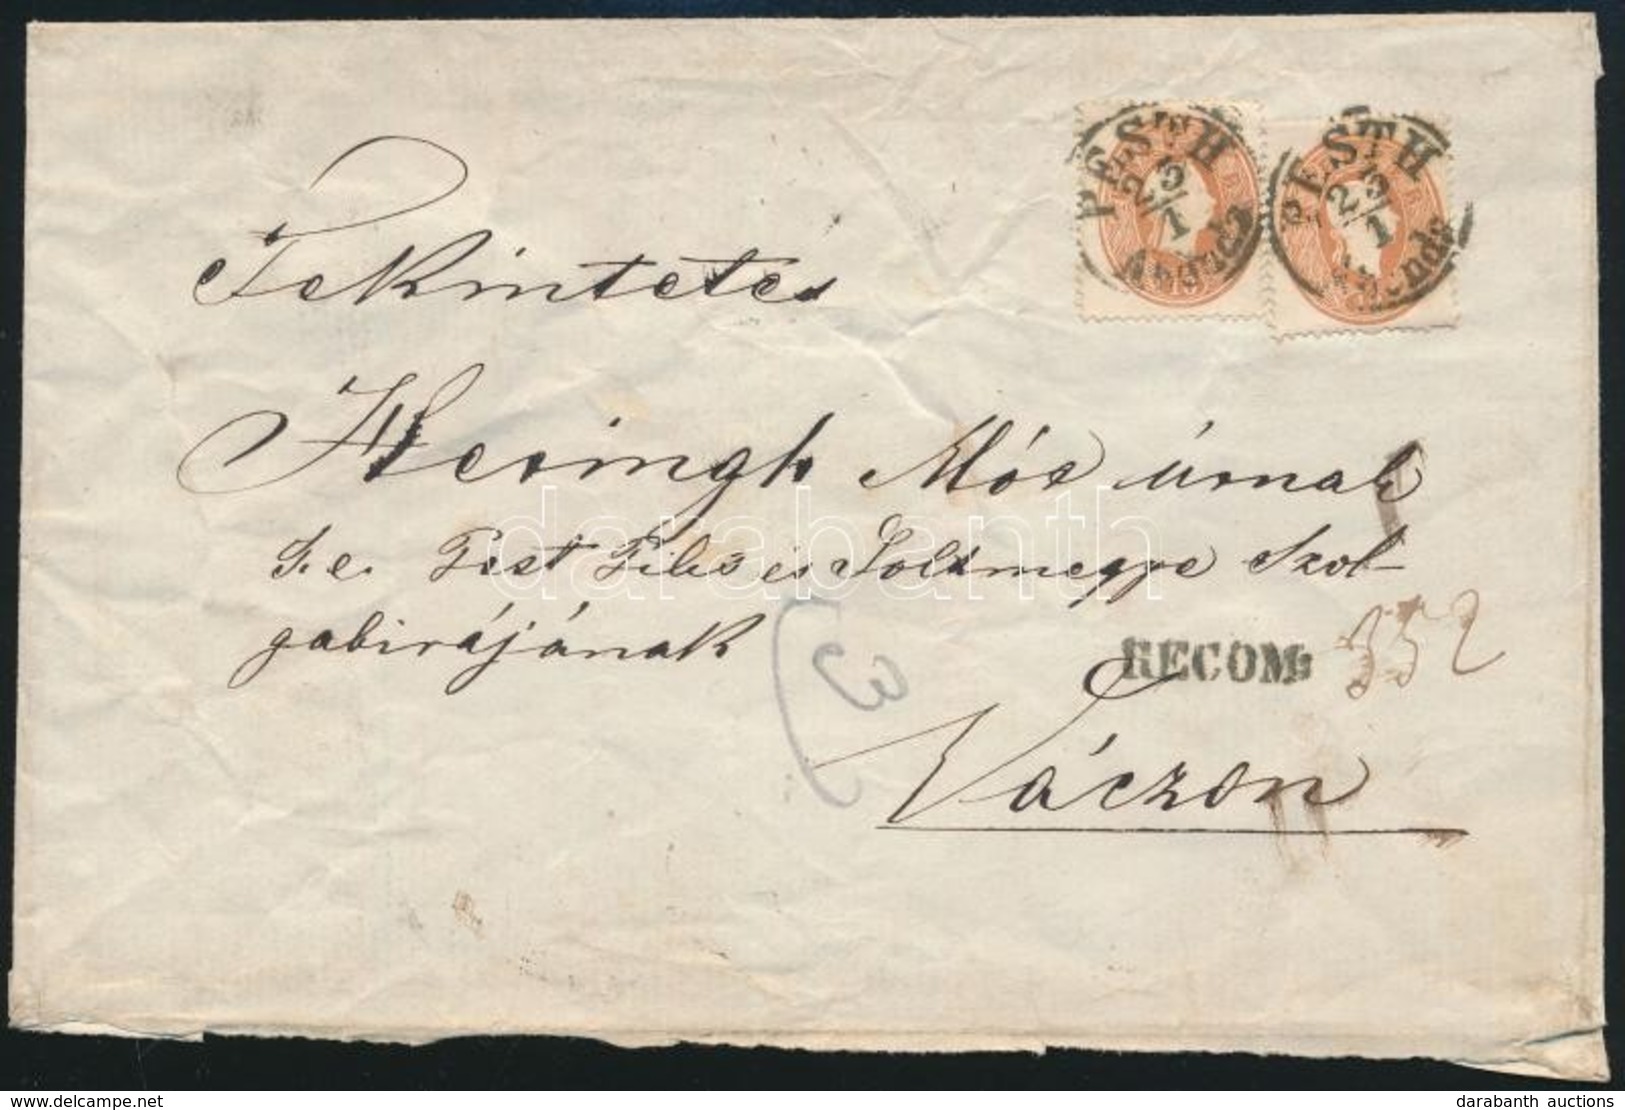 PESTH
23/1
Abends
PESTH
23/1
Abends
Tekintetes
Kesingh Mór úrnak
T. e. Pest Pilis és Soltmegye Szol-
gabirájának
3
RECOM: 352
Váczon
darabanth
darabanth auctions
delcampe.net